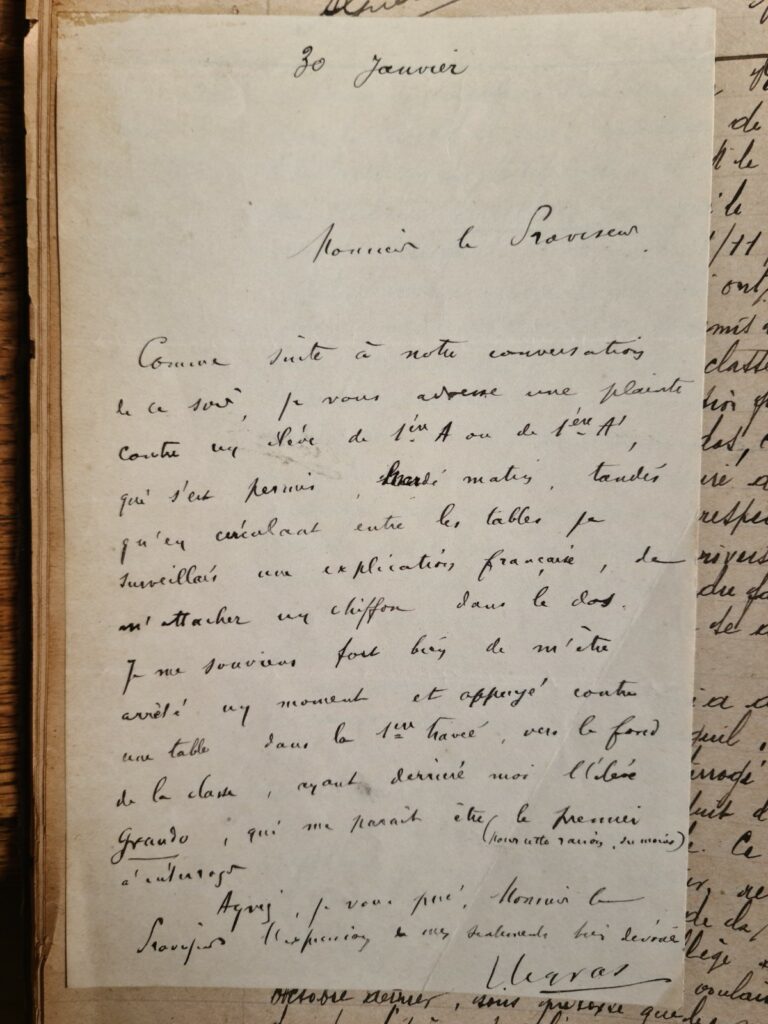 30 Janvier
Monsieur le Proviseur
Comme suite à notre conversation
de ce soir, je vous adresse une plainte
contre un élève de 1ère A ou de 1ère A',
qui s'est permis, mardi matin, tandis
qu'en circulant entre les tables je
surveillais une explication française, de
m'attacher un chiffon dans le dos.
Je me souviens fort bien de m'être
arrêté un moment et appuyé contre
une table dans la 1ère travée, vers le fond
de la classe, ayant derrière moi l'élève
Grando, qui me paraît être le premier
(pour cette raison, du moins)
à interroger
Agréez, je vous prie, Monsieur le
Proviseur l'expression de mes sentiments bien dévoués
Legras
de
le
/11
ont
mis
classe
respe
se
Ce
de
llège
octobre dernier, sous prétexte que